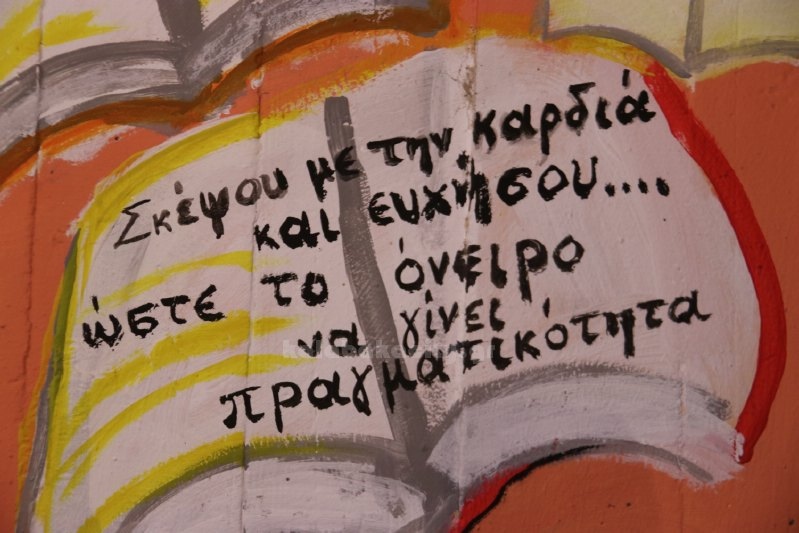 Σκέψου με την καρδιά
και ευχήσου....
ώστε το όνειρο
να γίνει
πραγματικότητα